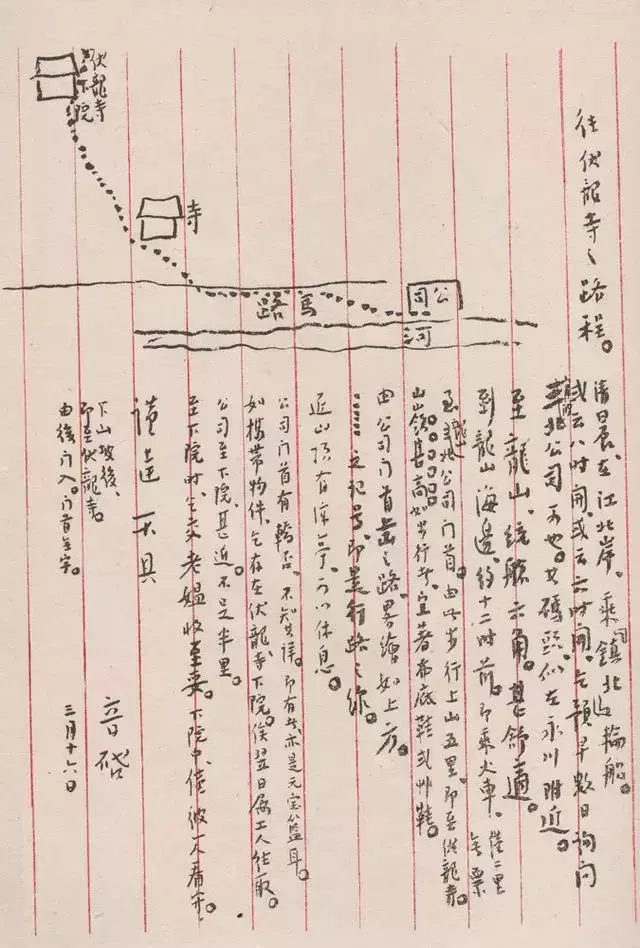 往伏龍寺之路程。
清日晨在江北岸,乘鎮北公司輪船。
或云八時開,或云六時開,乞預早數日詢問
華北公司可也。其碼頭,似在永川附近。
至龍山,統艙六角。甚舒適。
到龍山海邊,約十二時前。即乘火車。僅二里
無票
至龍山北公司門首。由此步行上山五里,即至伏龍寺。
山嶺甚高。如步行者,宜著布底鞋或艸鞋。
由公司門首出之路,畧繪如上方。
之記号,即是行路之綫。
近山頂有涼亭,可以休息。
公司门首有轎否,不知其詳。即有者亦是元宝籃耳。
如携帶物件,乞存在伏龍寺下院。俟翌日属工人往取。
公司至下院,甚近。不足半里。
至下院时,乞交老媼收至要。下院中,僅彼一人看守。
謹達不具
音啟
三月十六日
下山坡後、
即至伏龍寺。
由後门入。门首無字。
伏龍寺
下院
寺
馬路
公司
河